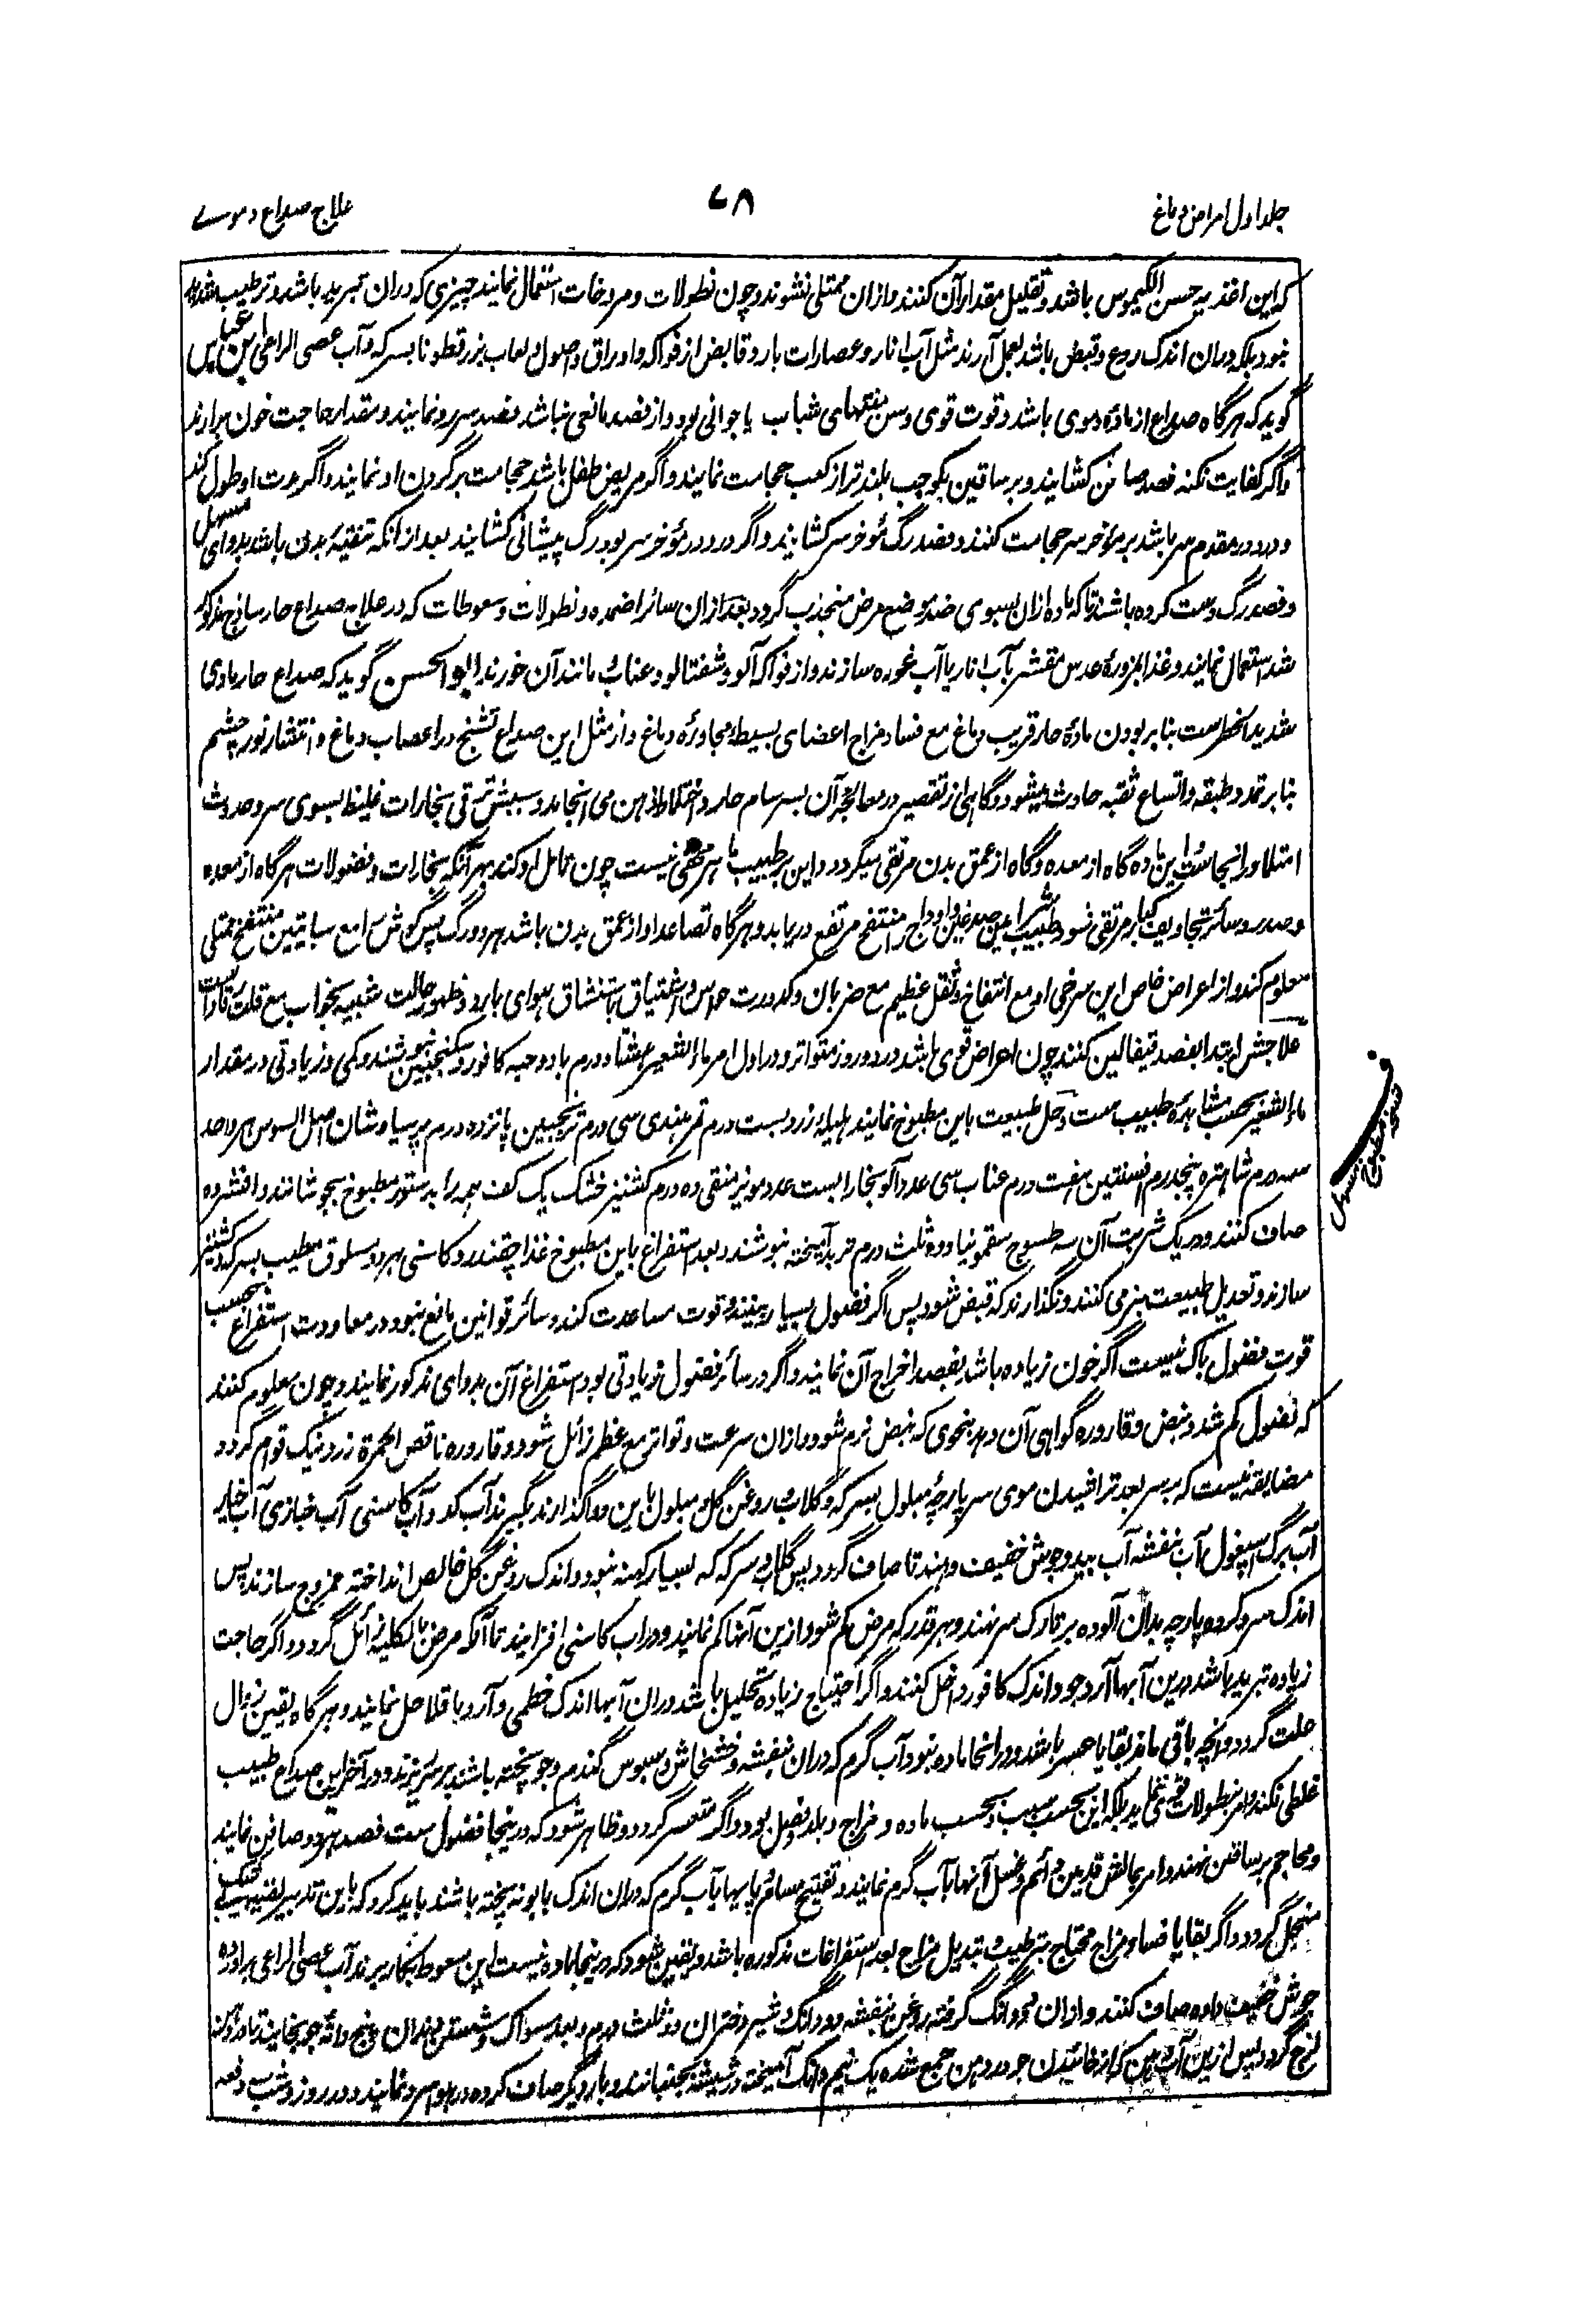 جلد اول امراض دماغ
۷۸
علاج صداع دموی
که این اغذیه حسن الکیموس باشد و تقلیل مقدار آن کنند و ازان ممتلی نشوند و چون نطولات و مروخات استعمال نمایند چیزی که دران تبرید باشد و ترطیب شدید
نبود بلکه دران اندک ردع و قبض باشد بعمل آرند مثل آب انار و عصارات بارد قابض از فواکه و اوراق و اصول و لعاب بزرقطونا بسرکه و آب عصی الراعی ابن عباس
گوید که هرگاه صداع از ماده دموی باشد و قوت قوی و سن منتهای شباب یا جوانی بود و از فصد مانعی نباشد فصد سررو نمایند و مقدار حاجت خون برآرند
و اگر کفایت نکند فصد صافن کشایند و بر ساقین یکوجب بلندتر از کعب حجامت نمایند و اگر مریض طفل باشد حجامت بر گردن او نمایند و اگر مدت او طول کند
و درد در مقدم سر باشد بر مؤخر سر حجامت کنند و فصد رگ مؤخر سر کشایند و اگر درد در مؤخر سر بود رگ پیشانی کشایند بعد از انکه تنقیه بدن باشد بدوای مسهل
و فصد رگ دست کرده باشند تا که ماده ازان بسوی ضد موضع مرض منجذب گردد بعد ازان سائر اضمده و نطولات و سعوطات که در علاج صداع حار ساذج مذکور
شد استعمال نمایند و غذا مزوره عدس مقشر بآب انار یا آب غوره سازند و از فواکه آلو و شفتالو و عناب مانند آن خورند ابو الحسن گوید که صداع حار مادی
شدید الخطرست بنابر بودن ماده حار قریب دماغ مع فساد مزاج اعضای بسیطه مجاوره دماغ و از مثل این صداع تشنج در اعصاب دماغ و انتشار نور چشم
بنا بر تمدد طبقه و اتساع ثقبه حادث میشود و گاهی از تقصیر در معالجه آن بسرسام حار و اختلاط ذهن می انجامد و سببش ترقی بخارات غلیظ بسوی سر و حدوث
امتلا در انجاست این ماده گاه از معده و گاه از عمق بدن مرتقی میگردد و این بر طبیب ماهر مخفی نیست چون تامل او کند بهر آنکه بخارات و فضولات هرگاه از معده
و صدر و سائر تجاویف کبار مرتقی شود طبیب شرائین صدغین و اوداج را منتفخ مرتفع دریابد و هرگاه تصاعد او از عمق بدن باشد هر دو رگ پس گوش را مع سباتیین منتفخ ممتلی
معلوم کند و از اعراض خاص این سرخی او مع انتفاخ و ثقل عظیم مع ضربان و کدورت حواس و اشتیاق باستنشاق هوای بارد و ظهور حالت شبیه بخواب مع قلت قرارست
علاجش ابتدا بفصد قیفالین کنند چون اعراض قوی باشد در دو روز متواتر و در اول امر ماءالشعیر هشتاد درم با دو حبه کافور و سکنجبین بنوشند و کمی و زیادتی در مقدار
ماءالشعیر بحسب مشاهده طبیب ست و حل طبیعت باین مطبوخ نمایند هلیله زرد بست درم تمر هندی سی درم ترنجبین پانزده درم پرسیاوشان اصل السوس هر واحد
سه درم شاهتره پنجدرم افسنتین هفت درم عناب سی عدد آلو بخارا بست عدد مویز منقی ده درم کشنیز خشک یک کف همه را بدستور مطبوخ بجوشانند و افشرده
صاف کنند و در یک شربت آن سه طسوج سقمونیا و دو ثلث درم تربد آمیخته بنوشند و بعد استفراغ باین مطبوخ غذا چقندر و کاسنی هر دو مسلوق مطیب بسرکه و کشنیز
سازند و تعدیل طبیعت بنرمی کنند و نگذارند که قبض شود پس اگر فضول بسیار بینند و قوت مساعدت کند و سائر قوانین مانع نبود در معاودت استفراغ بحسب
قوت فضول باک نیست اگر خون زیاده باشد بفصد اخراج آن نمایند و اگر در سائر فضول زیادتی بود استفراغ آن بدوای مذکور نمایند و چون معلوم کنند
که فضول کم شد و نبض و قاروره گواهی آن دهد بنحوی که نبض نرم شود و ازان سرعت و تواتر مع عظم زائل شود و قاروره ناقص الحمرة زرد نیک قوام گردد
مضایقه نیست که بر سر بعد تراشیدن موی سر پارچه مبلول بسرکه و گلاب و روغن گل و مبلول باین دوا گذارند بگیرند آب کدو و آب کاسنی آب خبازی آب خیار
آب برگ اسپغول آب بنفشه آب بید و جوش خفیف دهند تا صاف گردد پس گلاب و سرکه که بسیار کهنه نبود و اندک روغن گل خالص انداخته ممزوج سازند پس
اندک سرد کرده پارچه بدان آلوده بر تارک سر نهند و هر قدر که مرض کم شود ازین آبها کم نمایند و در آب کاسنی افزایند تا آنکه مرض بالکلیه زائل گردد و اگر حاجت
زیاده تبرید باشد درین آبها آرد جو و اندک کافور داخل کنند و اگر احتیاج زیاده تحلیل باشد دران آبها اندک خطمی و آرد باقلا حل نمایند و هرگاه یقین زوال
علت گردد و آنچه باقی ماند بقایا عسر باشد و در انجا ماده نبود آب گرم که دران بنفشه و خشخاش و سبوس گندم و جو پخته باشند بر سر ریزند و در آخر این صداع طبیب
غلطی نکند و هر نطولات بلکه این بحسب سبب و بحسب ماده و مزاج و بلد و فصل بود و اگر متعسر گردد و ظاهر شود که درینجا فضول ست فصد هر دو صافن نمایند
و محاجم بر ساقین نهند و امر بمالش قدمین دائم و غسل آنها بآب گرم نمایند و تفتیح مسام پایها بآب گرم که دران اندک بابونه پخته باشند باید کرد که باین تدبیر بقیه
منحل گردد و اگر بقایا فساد مزاج محتاج بترطیب و تبدیل مزاج بعد استفراغات مذکوره باشد و یقین شود که درینجا ماده نیست این سعوط بکار برند آب عصی الراعی
جوش خفیف داده صاف کنند و ازان دو دانگ گرفته روغن بنفشه دو دانگ و شیر دختران دو ثلث درم و بعد مسواک و شستن دندان دانه جو بخایند تا در دهن
لزج گردد پس ازین آب دهن که از خائیدن جو در دهن جمع شده یک نیم دانگ آمیخته در شیشه بجنبانند و بار دیگر صاف کرده در هوا سرد نمایند و در روز و شب سه دفعه
نسخه مطبوخ مسهل